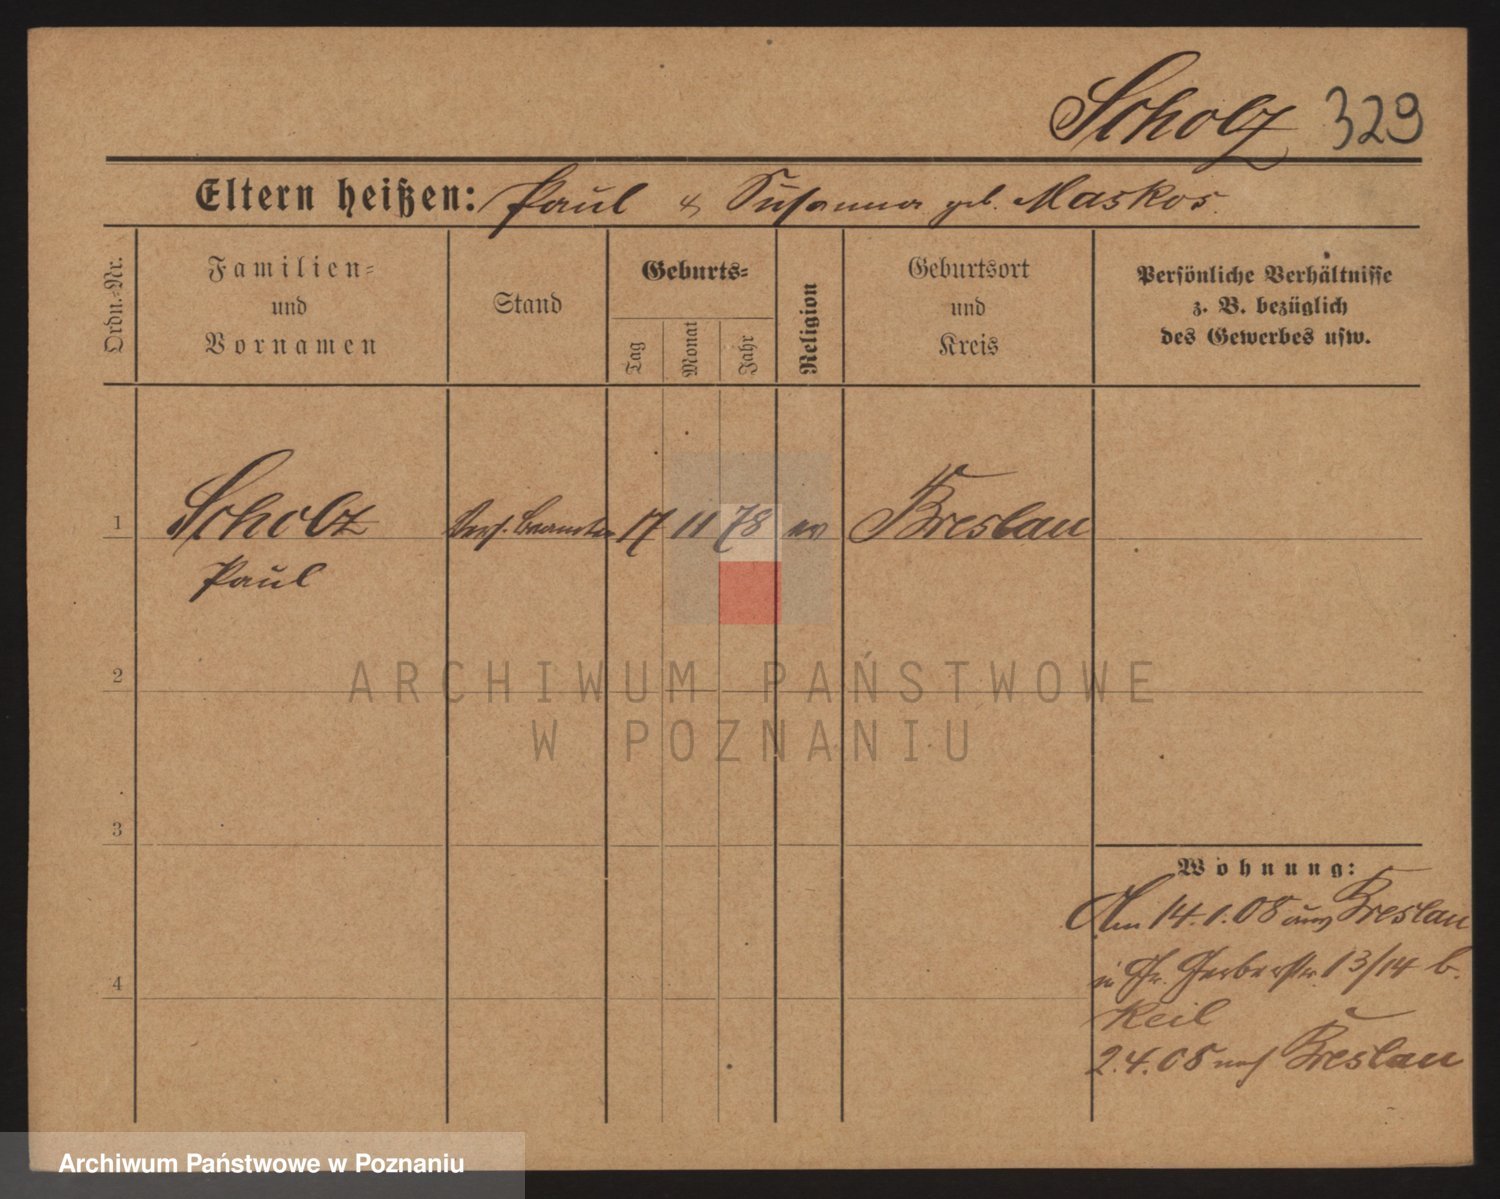 Scholz 329
Eltern heißen: Paul & Susanna geb. Maskos.
Ordn.-Nr.
Familien-
und
Vornamen
Stand
Geburts-
Tag
Monat
Jahr
Religion
Geburtsort
und
Kreis
Persönliche Verhältnisse
z. B. bezüglich
des Gewerbes usw.
1 Scholz Vers. Beamter 17 11 78 ev Breslau
Paul
2
ARCHIWUM PAŃSTWOWE
W POZNANIU
3
Wohnung:
Am 14.1.08 aus Breslau
in Gr. Gerberstr. 13/14 b.
4
Keil
2.4.08 nach Breslau
Archiwum Państwowe w Poznaniu